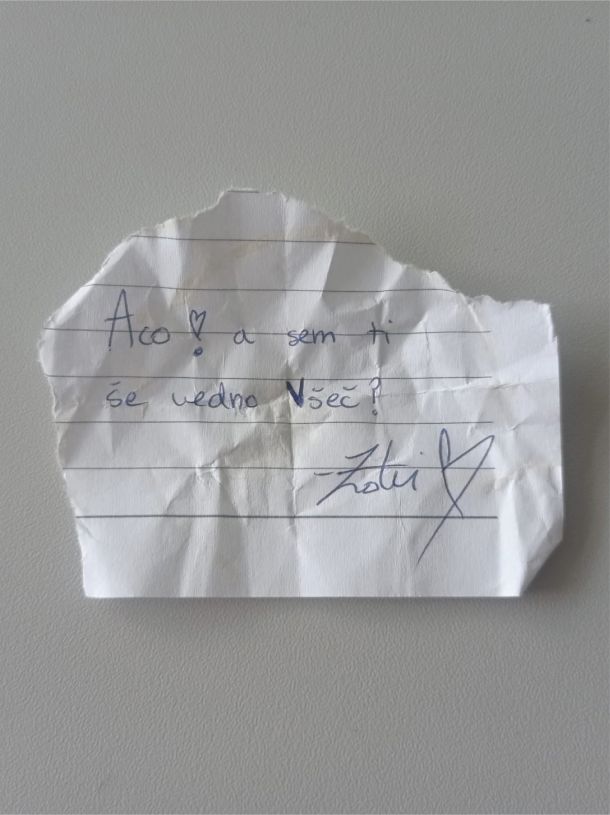 Aco! a sem ti
še vedno všeč?